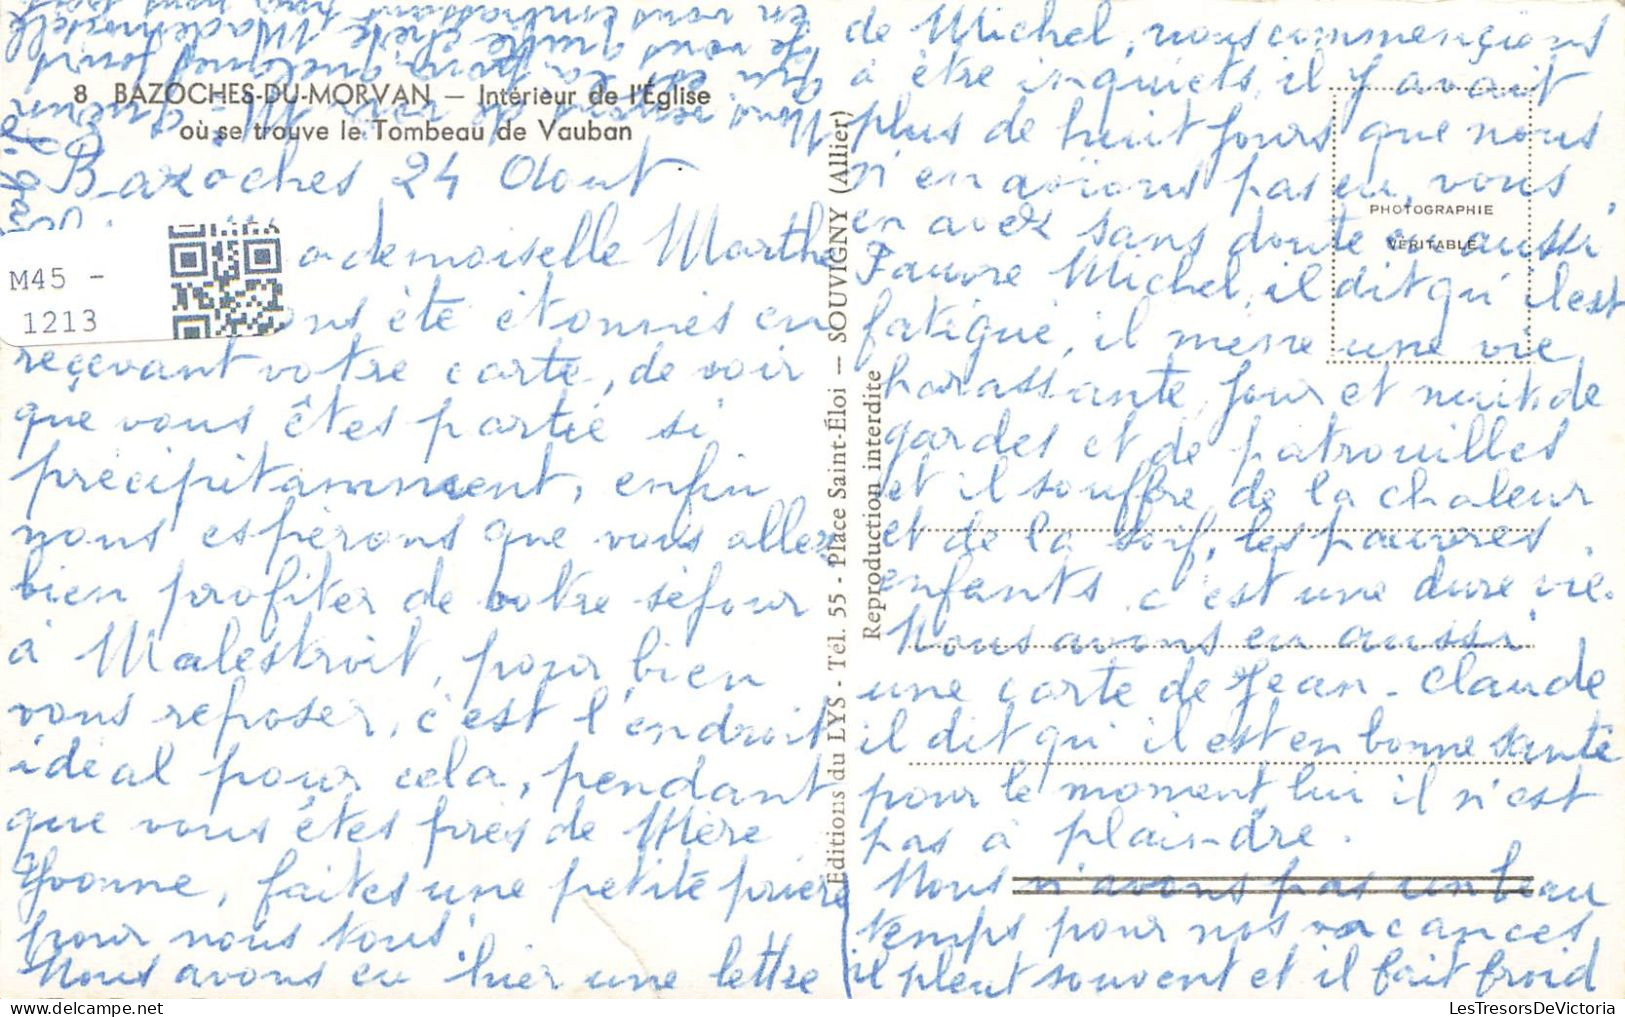 8 BAZOCHES-DU-MORVAN — Intérieur de l'Église
où se trouve le Tombeau de Vauban
Bazoches 24 Aout
ademoiselle Marthe
ons été étonnés en
reçevant votre carte, de voir
que vous êtes partie si
précipitamment, enfin
nous espérons que vous allez
bien profiter de votre séjour
à Malestroit, pour bien
vous reposer, c'est l'endroit
idéal pour cela, pendant
que vous êtes près de Mère
Yvonne, faites une petite prière
pour nous tous.
Nous avons eu hier une lettre
de Michel, nous commençions
à être inquiets, il y avait
plus de huit jours que nous
n'en avions pas eu, vous
en avez sans doute eu aussi
Pauvre Michel, il dit qu'il est
fatigué, il mène une vie
harassante, jour et nuit, de
gardes et de patrouilles
et il souffre de la chaleur
et de la soif, les pauvres
enfants c'est une dure vie.
Nous avons eu aussi
une carte de Jean-Claude
il dit qu'il est en bonne santé
pour le moment lui il n'est
pas à plaindre.
Nous n'avons pas un beau
temps pour nos vacances
il pleut souvent et il fait froid
Je vous quitte chère Mademoiselle
en vous embrassant
PHOTOGRAPHIE
VÉRITABLE
Editions du LYS - Tél. 55 - Place Saint-Éloi — SOUVIGNY (Allier)
Reproduction interdite
M45 -
1213
LesTresorsDeVictoria.com